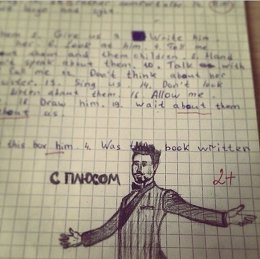 them 5. Give us
Write him
6. Look at him. 7. Tell me
about them and them children. 8. Hand
't speak about them. 10. Talk with
Call me 12. Don't think about her
13. Sing us. 14. Don't look
about them. 16. Allow me.
18. Draw him. 19. Wait about them
about us.
this box him. 4. Was this book written
С ПЛЮСОМ
2+